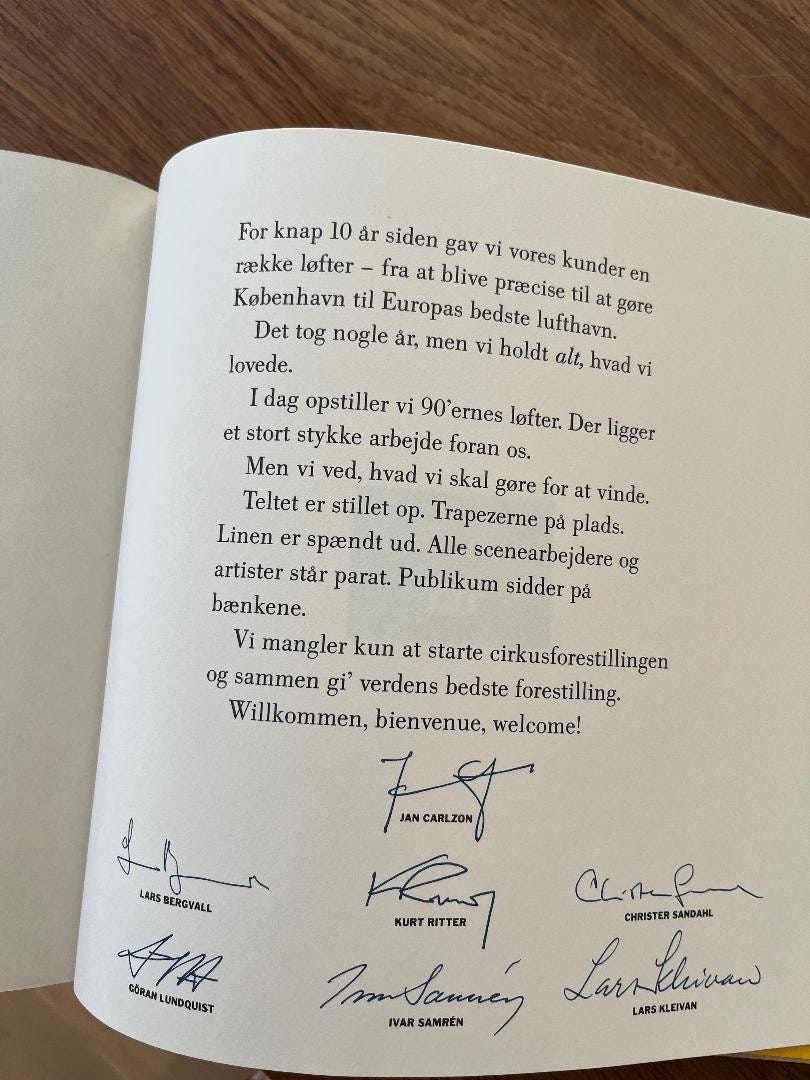 For knap 10 år siden gav vi vores kunder en
række løfter – fra at blive præcise til at gøre
København til Europas bedste lufthavn.
Det tog nogle år, men vi holdt alt, hvad vi
lovede.
I dag opstiller vi 90'ernes løfter. Der ligger
et stort stykke arbejde foran os.
Men vi ved, hvad vi skal gøre for at vinde.
Teltet er stillet op. Trapezerne på plads.
Linen er spændt ud. Alle scenearbejdere og
artister står parat. Publikum sidder på
bænkene.
Vi mangler kun at starte cirkusforestillingen
og sammen gi' verdens bedste forestilling.
Willkommen, bienvenue, welcome!
JAN CARLZON
LARS BERGVALL
KURT RITTER
CHRISTER SANDAHL
GÖRAN LUNDQUIST
Ivar Samrén
Lars Kleivan
IVAR SAMRÉN
LARS KLEIVAN